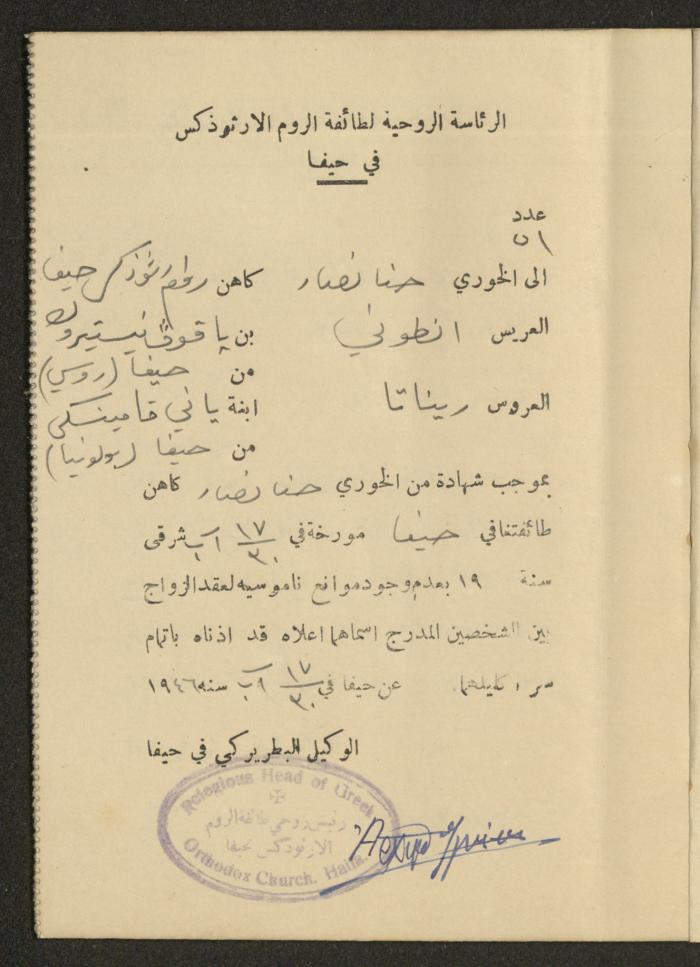 الرئاسة الروحية لطائفة الروم الارثوذكس
في حيفا
عدد
٥١
الى الخوري حنا نصار كاهن روم ارثوذكس حيفا
العريس انطوني بن ياقوف نيستيروك
من حيفا (روسي)
العروس ريناتا ابنة ياني قامينسكي
من حيفا (بولونيا)
بموجب شهادة من الخوري حنا نصار كاهن
طائفتنا في حيفا مورخة في ١٧/٣٠ آب شرقي
سنة ١٩ بعدم وجود موانع ناموسيه لعقد الزواج
بين الشخصين المدرج اسماهما اعلاه قد اذناه باتمام
سر اكليلهما. عن حيفا في ١٧/٣٠ آب سنه ١٩٤٦
الوكيل البطريركي في حيفا
Relegious Head of Greek
رئيس روحي طائفة الروم
الارثوذكس بحيفا
Orthodox Church. Haifa.